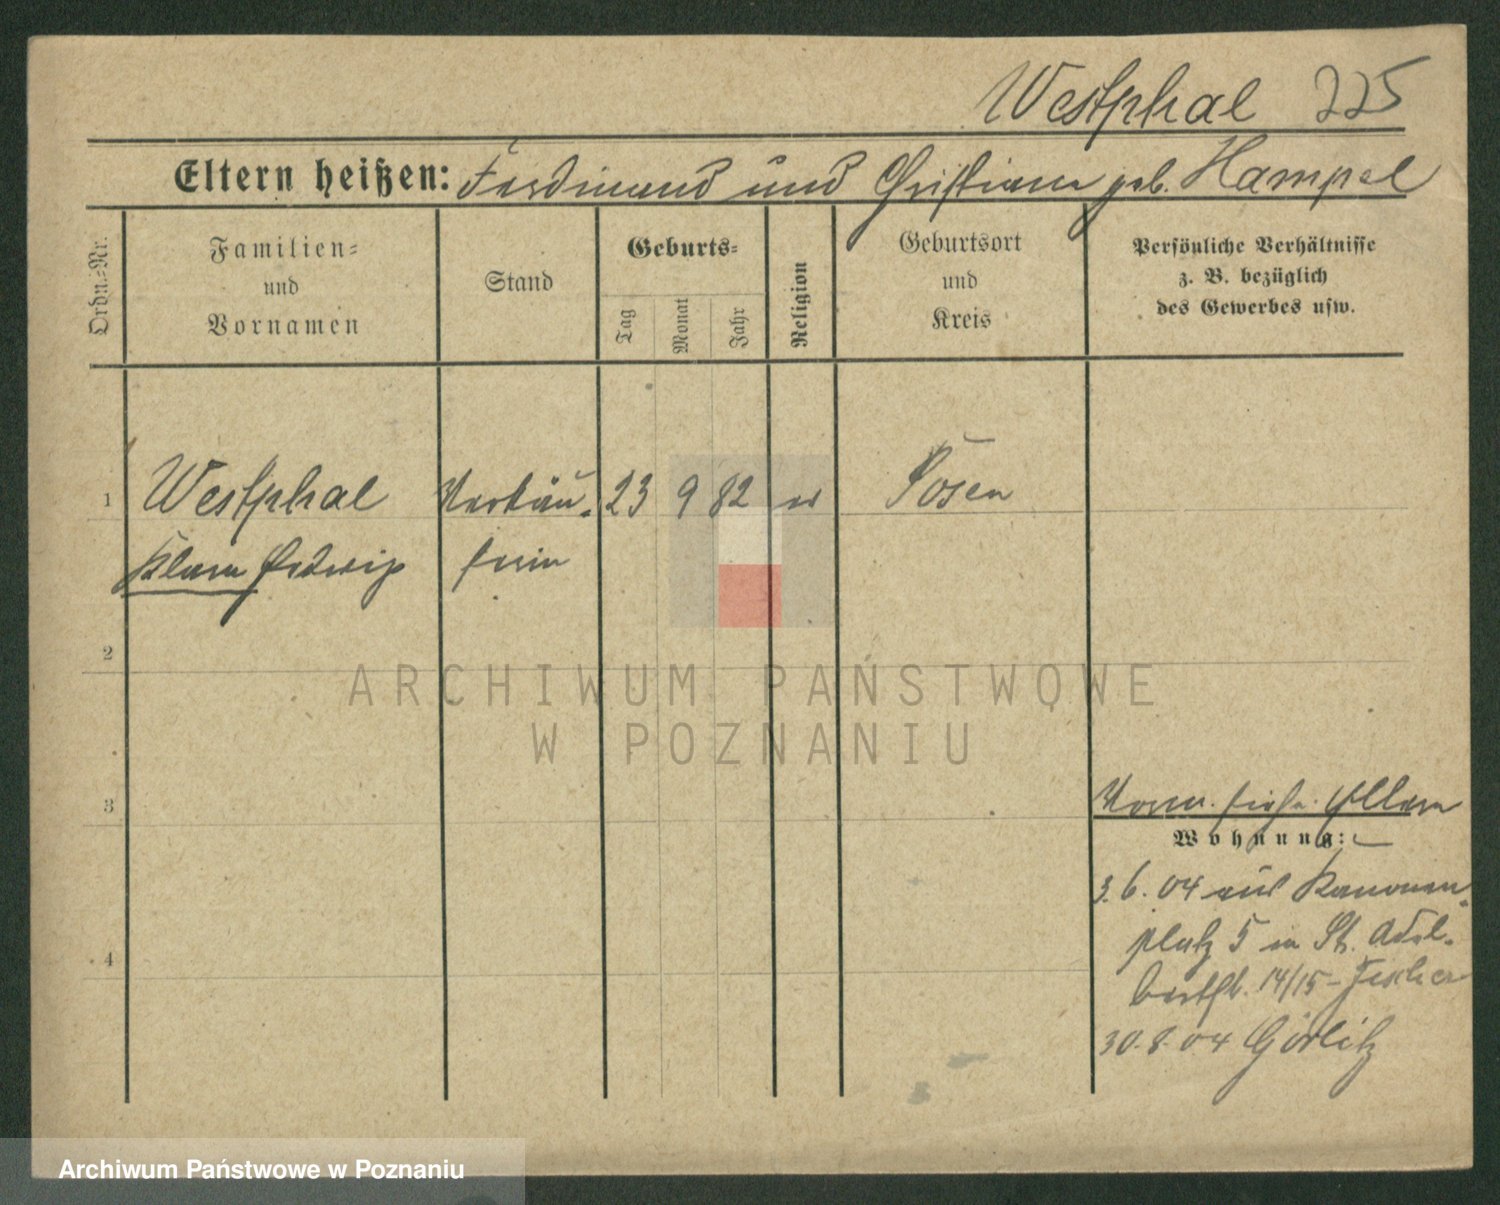 Westphal 225
Eltern heißen: Ferdinand und Christiane geb. Hampel
Ordn.=Nr.
Familien=
und
Vornamen
Stand
Geburts=
Tag
Monat
Jahr
Religion
Geburtsort
und
Kreis
Persönliche Verhältnisse
z. B. bezüglich
des Gewerbes usw.
1 Westphal Verkäu- 23 9 82 ev Posen
Klara Hedwig ferin
2
ARCHIWUM PAŃSTWOWE
W POZNANIU
3
Vorm. siehe
Wohnung:
3.6.04 aus Kanonen-
platz 5 in St. Adal-
bertstr. 14/15 - Fischer
4
30.8.04 Görlitz
Archiwum Państwowe w Poznaniu